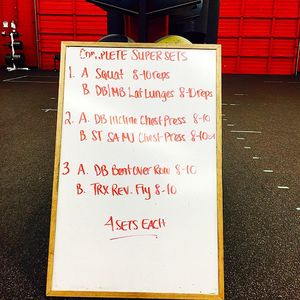 COMPLETE SUPERSETS
1. A Squat 8-10 reps
B DB/MB Lat Lunges 8-10 reps
2. A. DB Incline Chest Press 8-10
B. ST SA MJ Chest Press 8-10
3 A. DB Bent Over Row 8-10
B. TRX Rev. Fly 8-10
4 SETS EACH